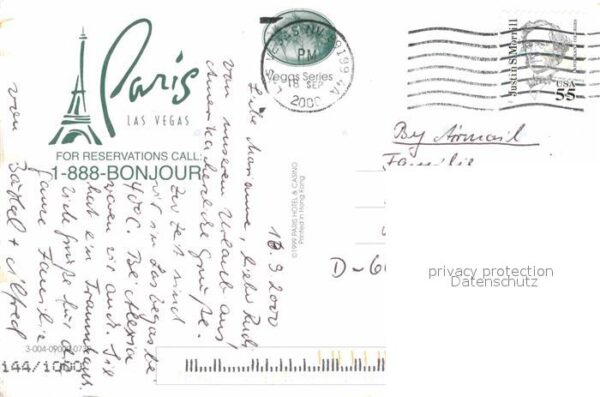 Paris
LAS VEGAS
FOR RESERVATIONS CALL:
1-888-BONJOUR
Vegas Series
LAS VEGAS NV 89199
PM
18 SEP
2000
Justin S. Morrill
USA
55
By Airmail
Familie
D-6
privacy protection
Datenschutz
©1999 PARIS HOTEL & CASINO
Printed in Hong Kong
18.9.2000
Liebe Marianne, lieber
von unserem Urlaub aus
Amerika herzliche Grüße.
Zur Zeit sind
wir in Las Vegas bei
40°C. Bei
waren wir auch. Sie
hat ein Traumhaus.
Grüße für die
ganze Familie
von
+ Alfred
3-004-09000-07
144/1000